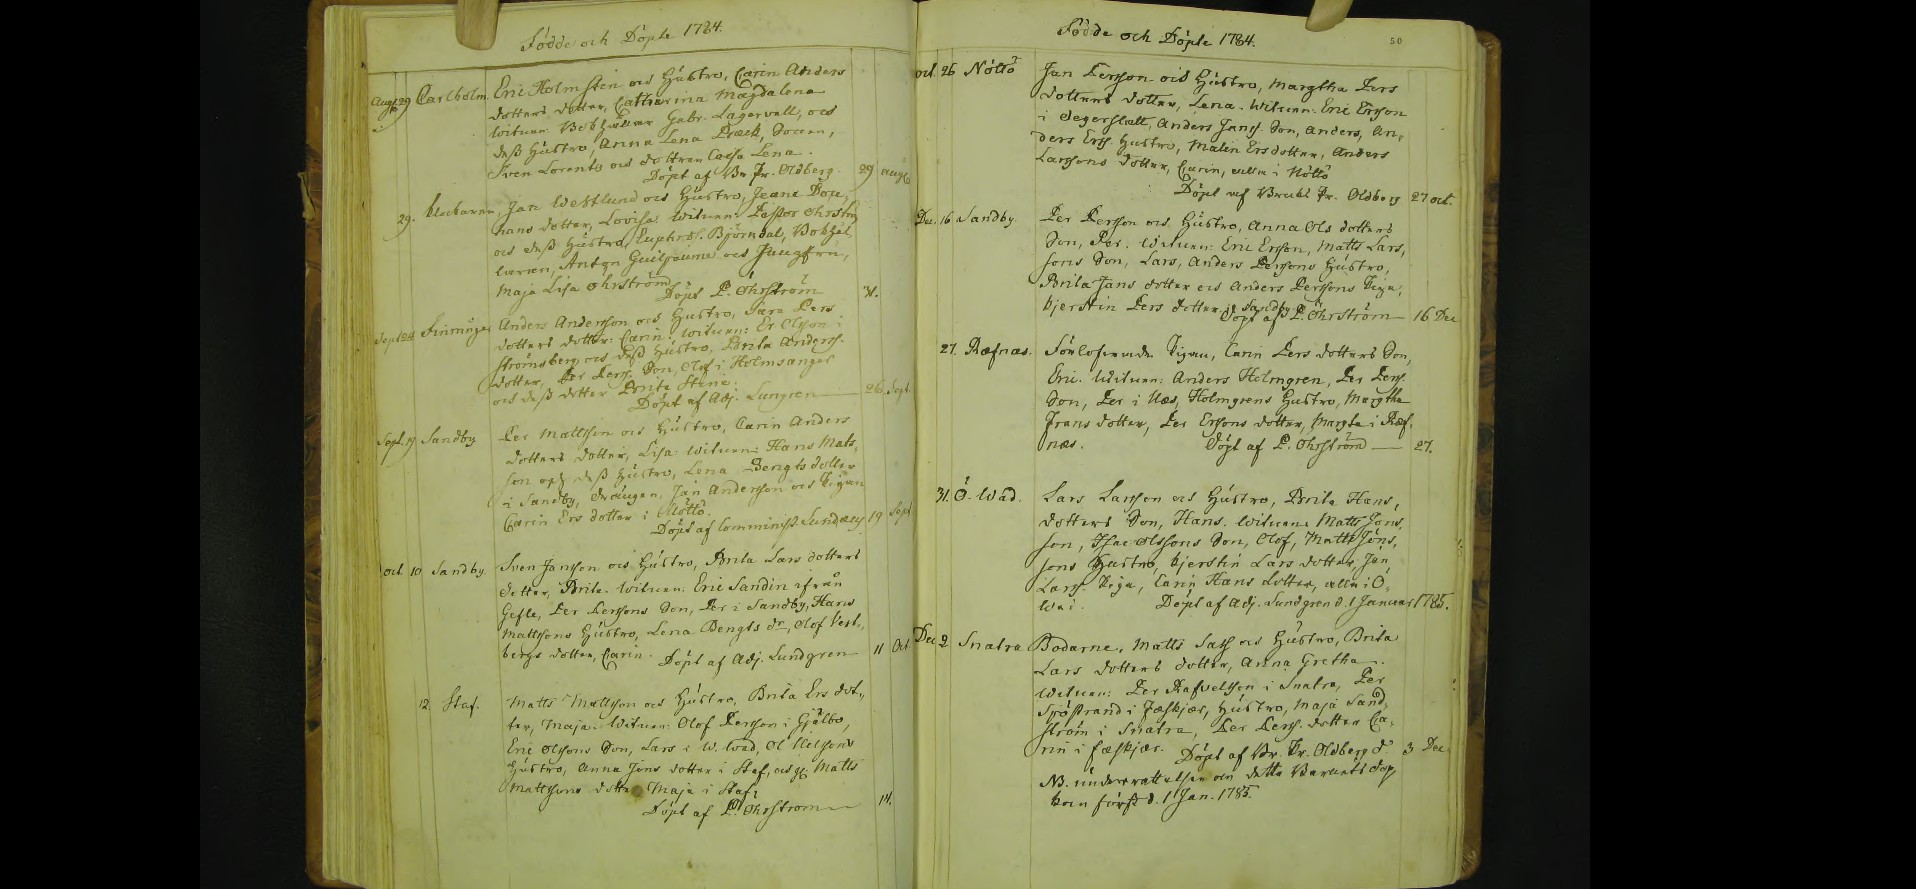 Födde och Döpte 1784.
Augt 29 Carlholm. Eric Holmsten och Hustro, Carin Anders
dotters dotter, Catharina Magdalena
witnen: Gabr. Lagervall, och
dess Hustro, Anna Lena
Sven Lorents och dottren Cajsa Lena.
Döpt af Br. Pr. Oldberg. 29 Augt
29. Jan Westlund och Hustro,
hans dotter, Lovisa. Witnen: Pastor Öhrström
och dess Hustro, Euphros. Björndal,
Anton Guillaume och Jungfru,
Maja Lisa Öhrström
Döpt P. Öhrström 31.
Sept 24 Anders Andersson och Hustro, Sara Pers
dotters dotter: Carin. Witnen: Er. Olsson i
Strömsberg och dess Hustro, Brita Anderss.
dotter, Per Perss. Son, Olof i Holmsänger
och dess dotter Brita Stina.
Döpt af Adj. Lungren 26 Sept.
Sept. 19 Sandby Per Mattsson och Hustro, Carin Anders
dotters dotter, Lisa. Witnen: Hans Mats,
son och dess Hustro, Lena Bengts dotter
i Sandby, drängen, Jan Andersson och Pigan
Carin Ers dotter i Nöttö.
Döpt af Comminist. 19 Sept
Oct. 10 Sandby. Sven Jansson och Hustro, Brita Lars dotters
dotter, Brita. Witnen: Eric Sandin ifrån
Gefle, Per Perssons Son, Per i Sandby, Hans
Mattsons Hustro, Lena Bengts dr, Olof Vest,
bergs dotter, Carin. Döpt af Adj. Lundgren 11 Oct.
12. Staf. Matts Mattsson och Hustro, Brita Ers dot,
ter, Maja. Witnen: Olof Persson i Gjälbo,
Eric Olssons Son, Lars i W. Wad, Ol Nilssons
Hustro, Anna Jöns dotter i Staf, och Matts
Mattssons dotter Maja i Staf.
Döpt af P. Öhrström 14.
Födde och Döpte 1784. 50
Oct. 26 Nöttö Jan Persson och Hustro, Margtha Pers
dotters dotter, Lena. Witnen: Eric Ersson
i Segerstall, Anders Janss. Son, Anders, An,
ders Erss. Hustro, Malin Ersdotter, Anders
Larssons dotter, Carin, alla i Nöttö
Döpt af Pr. Oldberg 27 oct.
Dec. 16 Sandby. Per Persson och Hustro, Anna Ols dotters
Son, Per. Witnen: Eric Ersson, Matts Lars,
sons Son, Lars, Anders Perssons Hustro,
Brita Jans dotter och Anders Perssons Piga,
Kjerstin Pers dotter i Sandby
Döpt af P. Öhrström 16 Dec
27. Ræfnæs. Pigan, Carin Pers dotters Son,
Eric. Witnen: Anders Holmgren, Per Perss.
Son, Per i Næs, Holmgrens Hustro, Margtha
Frans dotter, Per Erssons dotter, Margta i Ræf,
næs. Döpt af P. Öhrström 27.
31. Ö. Wad. Lars Larsson och Hustro, Brita Hans,
dotters Son, Hans. Witnen: Matts Jöns,
son, Isac Olssons Son, Olof, Matts Jöns,
sons Hustro, Kjerstin Lars dotter, Jan
Larss. Piga, Carin Hans dotter, alla i Ö.
Wad. Döpt af Adj. Lundgren d. 1 Januar 1785.
Dec 2 Snatra Bodarne, Matts Sass och Hustro, Brita
Lars dotters dotter, Anna Gretha.
Witnen: Per Rafvelsson i Snatra, Per
Sjöstrand i Fæskjær, Hustro, Maja Sand,
ström i Snatra, Per Perss. dotter Ca,
rin i Fæskjær. Döpt af Br. Pr. Oldberg d. 3 Dec
NB. underrättelsen om detta Barnets dop
kom först d. 1 Jan. 1785.